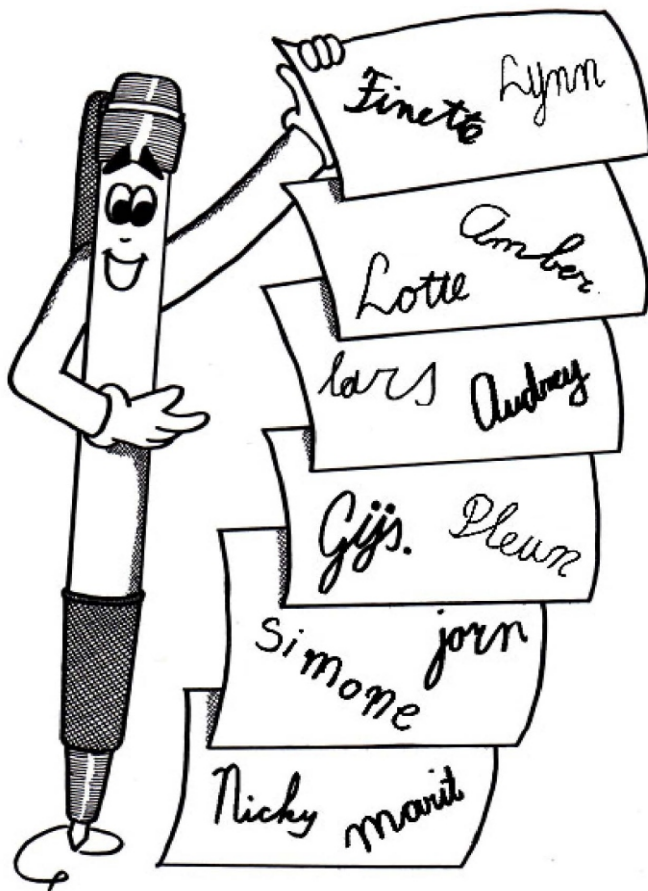 Finette Lynn
Lotte Amber
lars Audrey
Gijs. Pleun
Simone jorn
Nicky marit